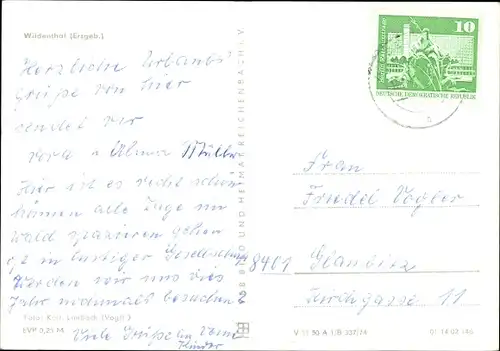 Wildenthal (Erzgeb.)
Herzliche Urlaubs
Grüße von hier
sendet Dir
Vera u Müller
Hier ist es recht schön
können alle Tage im
Wald spazieren gehen
in lustiger Gesellschaft
Werden wir uns dies
Jahr nochmals besuchen?
Viele Grüße an Deine
Kinder
Foto: Kist. Limbach (Vogtl.)
EVP 0,25 M
BILD UND HEIMAT REICHENBACH I. V.
10
DEUTSCHE DEMOKRATISCHE REPUBLIK
Frau
Friedel Vogler
8401 Glaubitz
Kirchgasse 11
V 11 50 A 1/B 327/74
01 14 02 146